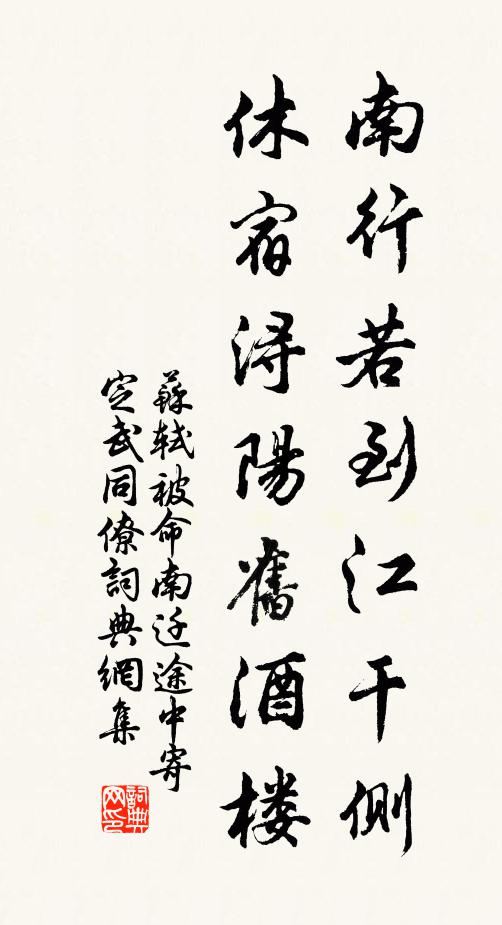 南行若到江干側
休宿潯陽舊酒楼
蘇軾被命南迁途中寄
定武同僚詞典網集
詞典网印